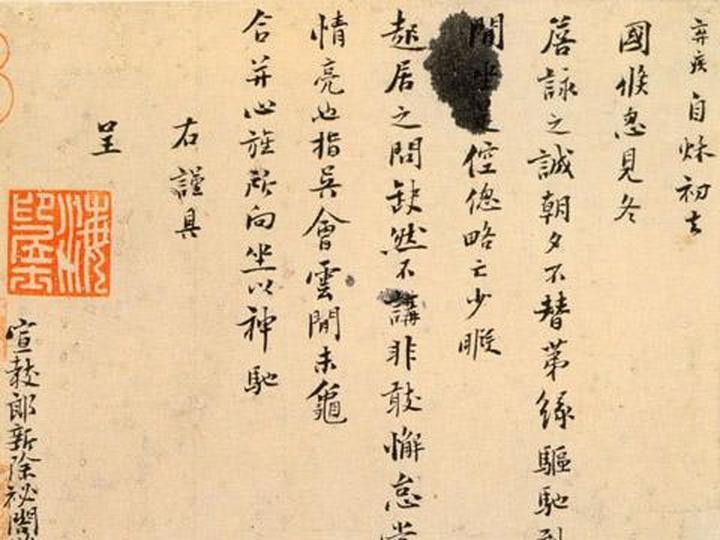 弃疾自秌初去
國倏忽見冬
詹詠之誠朝夕不替第緣驅馳到
間坐是倥偬略亡少暇
起居之問缺然不講非敢懈怠當
情亮也指吳會雲間未龜
合并心旌所向坐以神馳
右謹具
呈
宣教郎新除祕閣